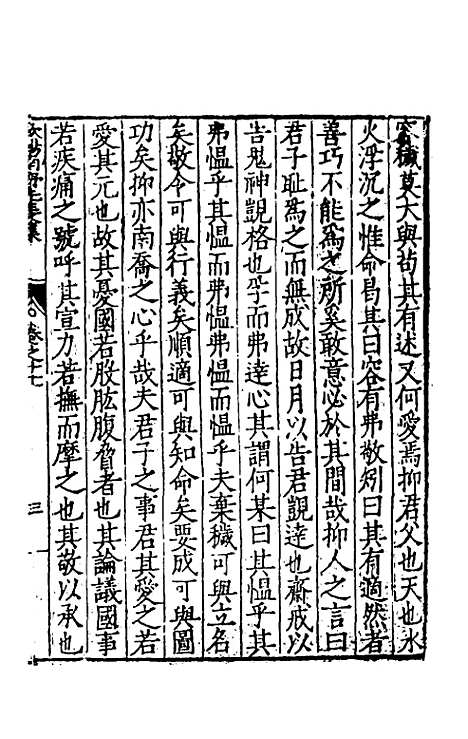 穢莫大與苟其有述又何愛焉抑君父也天也水
火浮沉之惟命曷其曰容有弗敬矧曰其有適然者
善巧不能爲之所奚敢意必於其間哉抑人之言曰
君子耻爲之而無成故日月以告君覬達也齋戒以
告鬼神覬格也孚而弗達心其謂何某曰其慍乎其
弗慍乎其慍而弗慍而慍乎夫棄穢可與立名
矣敬令可與行義矣順適可與知命矣要成可與圖
功矣抑亦南喬之心乎哉夫君子之事君其愛之若
愛其元也故其憂國若股肱腹脅者也其論議國事
若疾痛之號呼其宣力若撫而摩之也其敬以承也
卷之十七
三